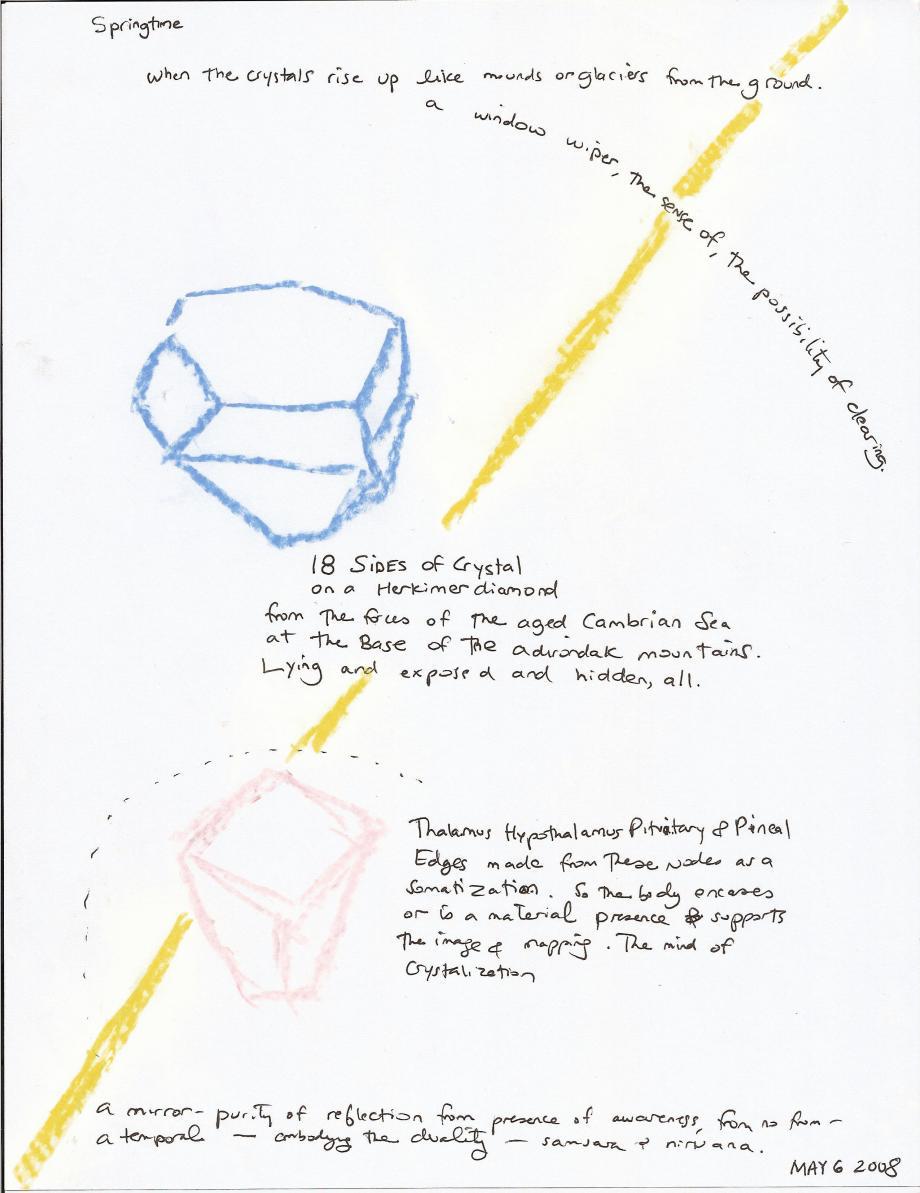 Springtime
when the crystals rise up like mounds or glaciers from the ground.
a window wiper, the sense of, the possibility of clearing.
18 SIDES of Crystal
on a Herkimer diamond
from the focus of the aged Cambrian Sea
at the Base of the adirondak mountains.
Lying and exposed and hidden, all.
Thalamus Hypothalamus Pituitary & Pineal
Edges made from these nodes as a
Somatization. So the body encases
or is a material presence & supports
the image & mapping. The mind of
Crystalization
a mirror - purity of reflection from presence of awareness, from no from -
a temporal — embodying the duality — samsara & nirvana.
MAY 6 2008